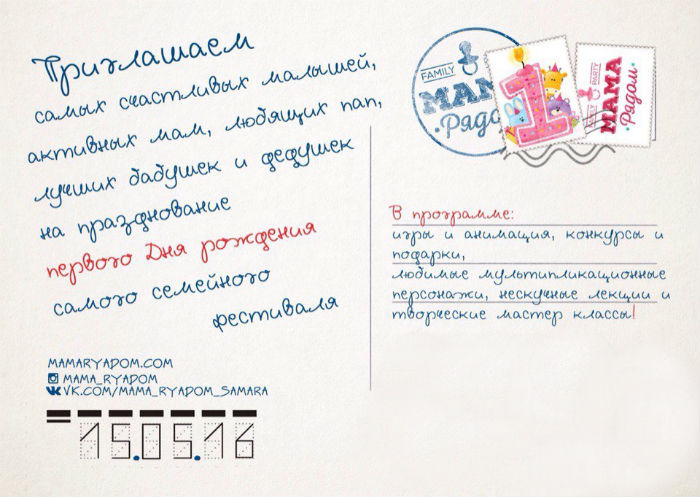 Приглашаем
самых счастливых малышей,
активных мам, любящих пап,
лучших бабушек и дедушек
на празднование
первого Дня рождения
самого семейного
фестиваля
MAMARYADOM.COM
MAMA_RYADOM
VK.COM/MAMA_RYADOM_SAMARA
15.05.16
FAMILY
МАМ
Рядо
1
PARTY
МАМА
Рядом
В программе:
игры и анимация, конкурсы и
подарки,
любимые мультипликационные
персонажи, нескучные лекции и
творческие мастер классы!